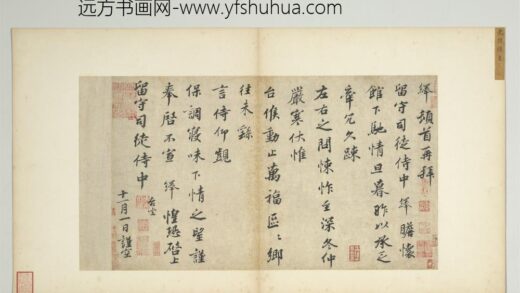 远方书画网-www.yfshuhua.com
绛頓首再拜
留守司徒侍中絳瞻懷
館下馳情旦暮昨以承乏
牽冗久踈
左右之問悚怍至深冬仲
嚴寒伏惟
台候動止萬福區區鄉
往未繇
言侍仰覬
保調寢味下情之望謹
奉啓不宣絳惶恐啓上
留守司徒侍中
台坐
十一月一日謹空